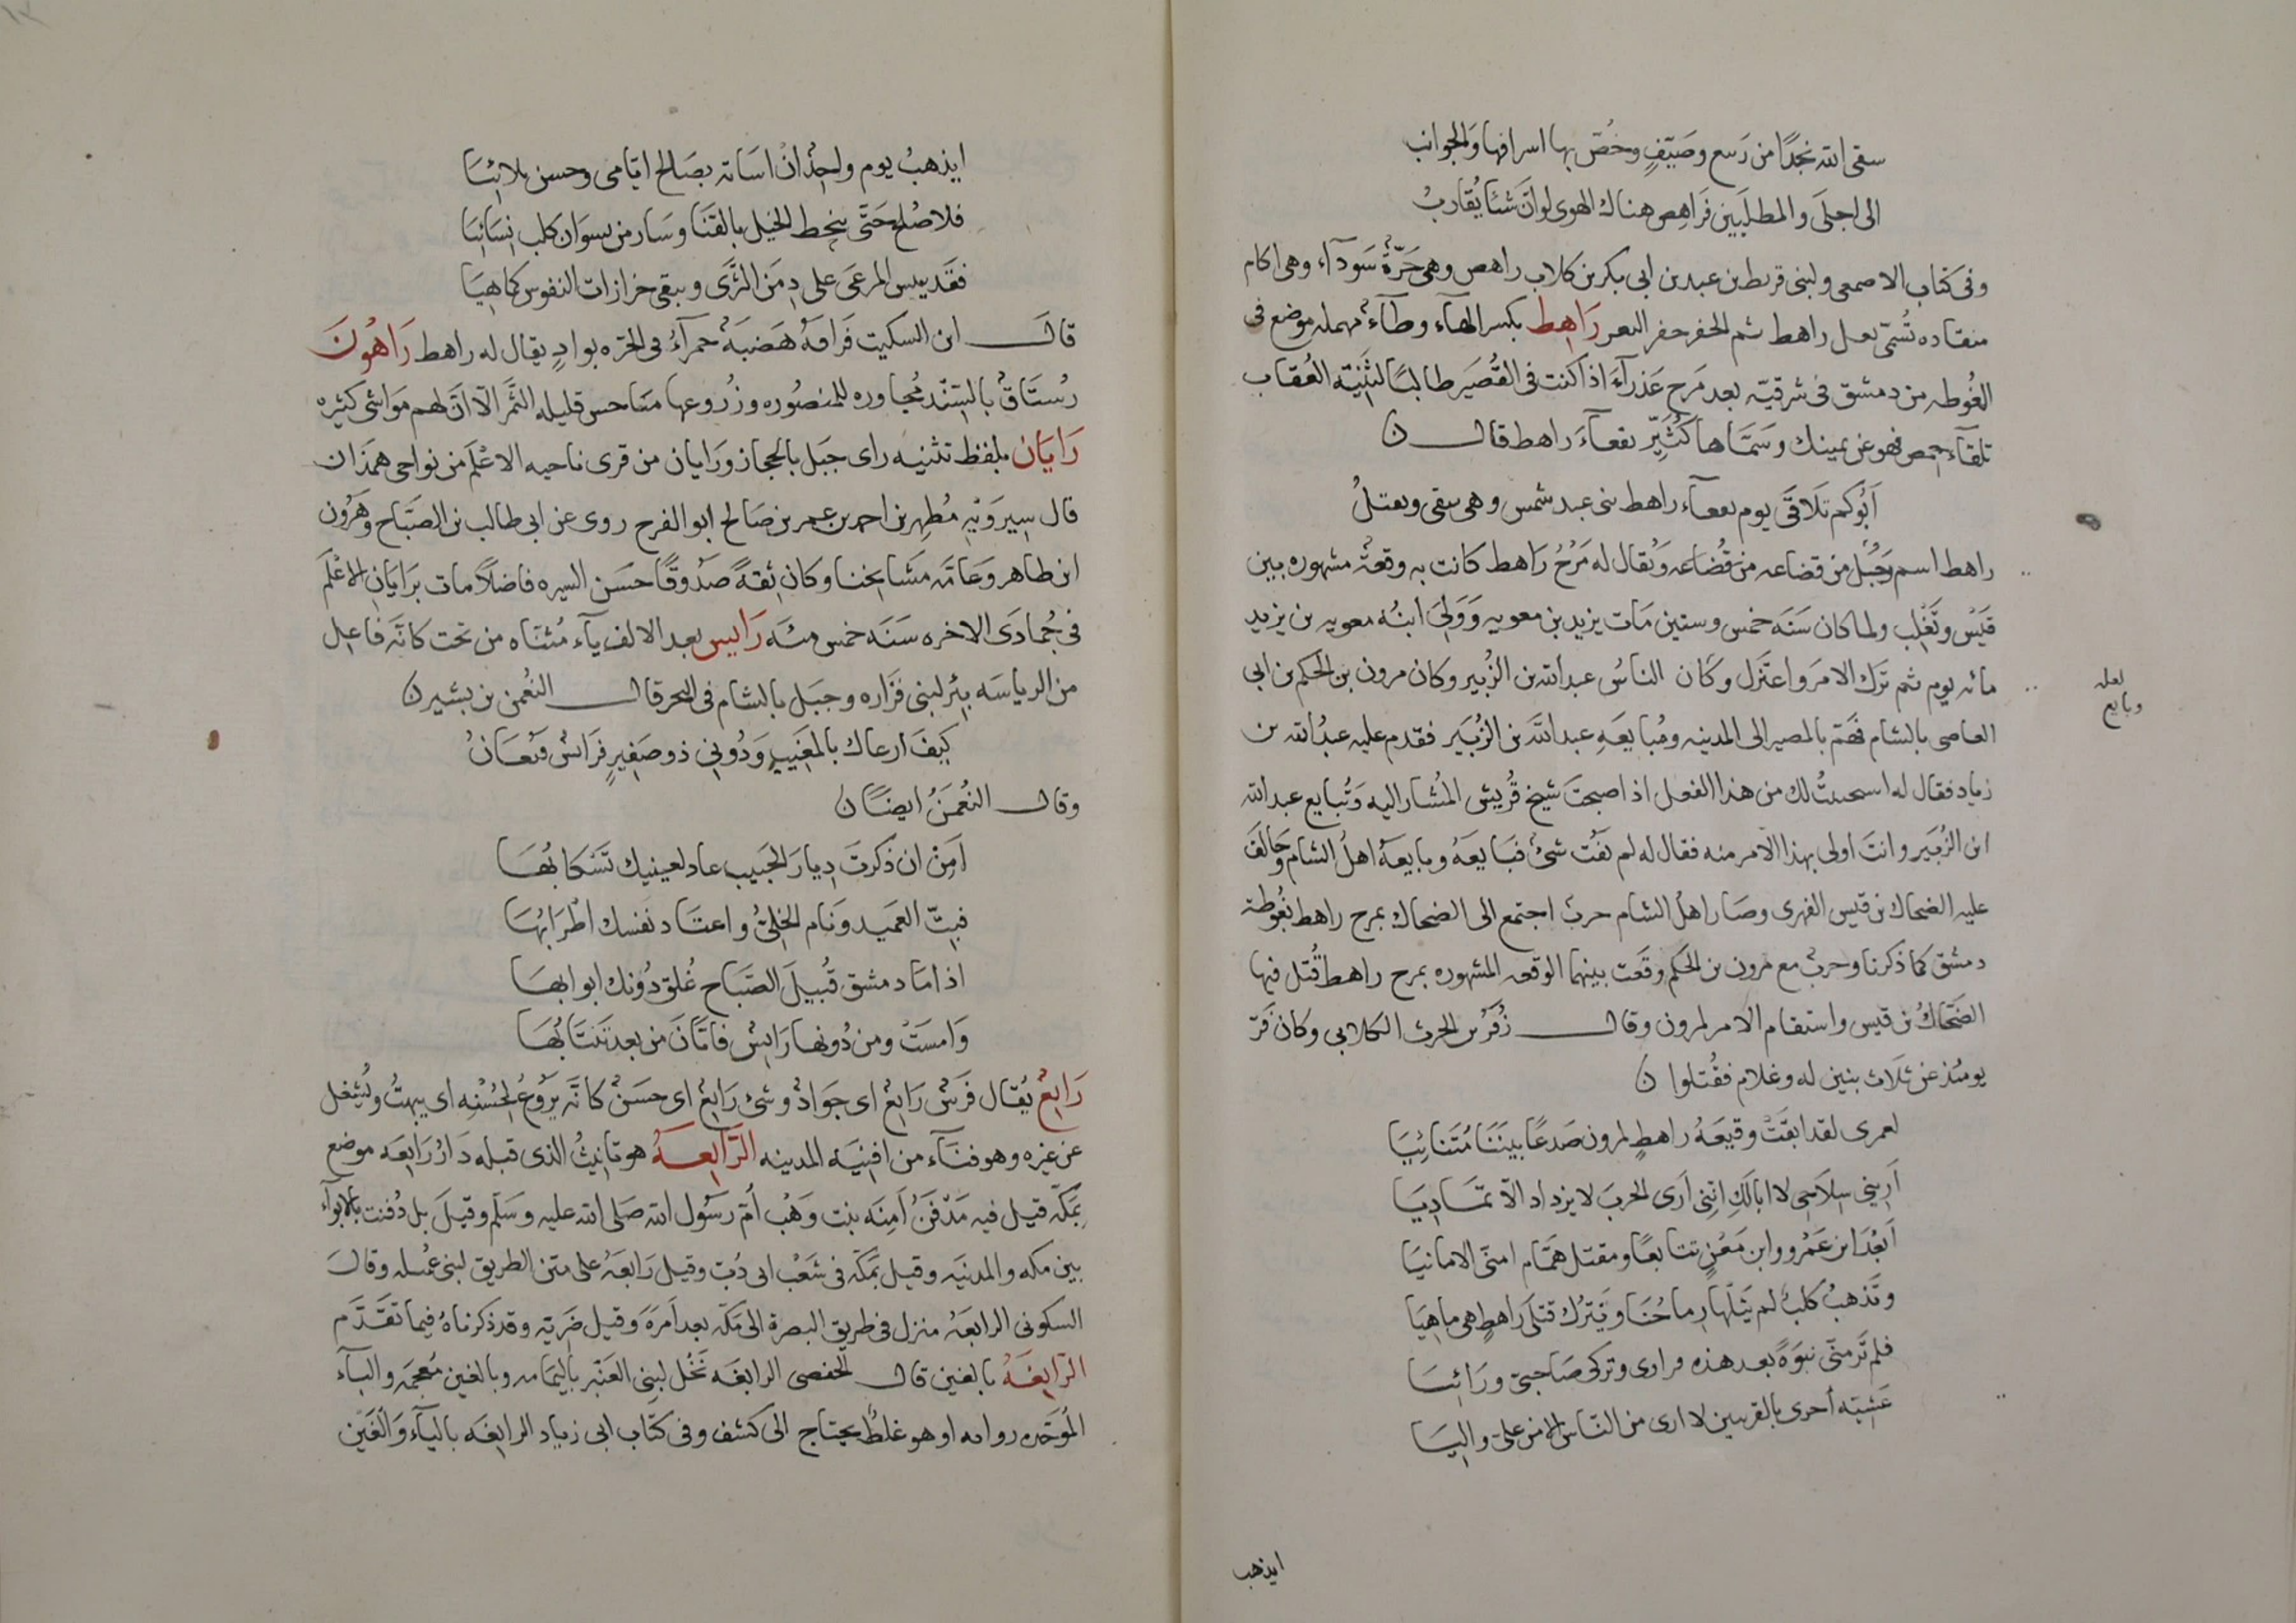 سقى الله نجدًا من ربيع وصَيّفٍ وخُصّ بها اسرافها والجوانب
الى اجلَى والمطلَبين فَراهِص هناك الهوى لو انَّ شئا يُقاربُ
وفى كتاب الاصمعى ولبنى قريط بن عبد بن ابى بكر بن كلاب راهص وهى حَرّةٌ سَودآء وهى اكام
منقاده تُسَمّى نعل راهط ثم الجفر جفر البعر رَاهِط بكسر الهآء وطآءٌ مهمله موضع فى
الغُوطه من دمشق فى شرقيّه بعد مَرح عَذرآءَ اذا كنت فى القُصَير طالبًا لثَنِيّة العُقاب
تلقآء حمص فهو عن يمينك وسَمّاها كُثَيّر نقعآءَ راهط قال ن
اَبُوكم تَلَاقَى يوم نقعآء راهط بنى عبد شمس وهى تنفى وتقتلُ
راهط اسم رَجُل من قضاعه من قُضاعه ويُقال له مَرْحُ رَاهط كانت به وقعةٌ مشهوره بين
قَيْس وتَغْلِب ولما كان سَنَه خمس وستين مَات يزيد بن معويه وَوَلِىَ ابنُه معويه بن يزيد
مائه يوم ثم ترك الامرَ واعتَزل وكَان الناسُ عبد الله بن الزُبير وكان مرون بن الحكم بن ابى
العاصى بالشام فهَمّ بالمصير الى المدينه ومُبايعَهِ عبد الله بن الزُبَير فقدم عليه عبدُ الله بن
زياد فقال له استحييتُ لك من هذا الفعل اذ اصبحتَ شيخ قُريش المُشار اليه وتُبايع عبد الله
ابن الزُبَير وانتَ اولى بهذا الامر منه فقال له لم يَفُت شئ فبَايعَهُ وبايعهُ اهلُ الشام وخَالَفَ
عليه الضحاك بن قيس الفهرى وصَار اهلُ الشام حرب اجتمع الى الضحاك بمرح راهط بغُوطة
دمشق كما ذكرنا وحربٌ مع مرون بن الحكم وقَعت بينهما الوقعه المشهوره بمرح راهط قُتل فيها
الضَحّاكُ بن قيس واستقام الامر لمرون وقال زُفَرُ بن الحرث الكلابى وكان فَرّ
يومئذ عن ثلاث بنين له وغلام فقُتلوا ن
لعمرى لقد ابقَتْ وقيعَهُ راهطٍ لمرون صَدعًا بينَنَا مُتَنائِيَا
اَرِينى سِلاحى لا ابالَكِ انّنِى اَرى الحربَ لا يزداد الّا تمَاديَا
اَبَعْدَ ابن عَمْرو وابن مَعْنٍ تتابعًا ومقتل همَّام امنّى الامانيَا
وتَذهبُ كلبٌ لم يَنَلْها رِماحُنَا ونَترُك قتلَى راهطٍ هى ماهِيَا
فلم تَر منّى نبوَةً بعد هذه فرارى وتركى صَاحبىّ ورَائيَا
عَشيّه أجرى بالقرينين لا ارى من النّاس الا من علىّ واليَا
لعله
وبايع
ايذهب
ايذهبُ يوم واحدٌ انْ اسَاته بصَالح ايّامى وحسن بلائيَا
فلا صُلحَ حَتَّى ينحِط الخيل بالقَنَا وسَار من نسوَان كلب نِسَائيَا
فقَد يبس المرعَى على دِمَن الثَرَى ويبقى حزازات النفوس كما هِيَا
قال ابن السكيت فَرامهُ هَضبَةٌ حمرآءُ فى الحَرّه بوادٍ يقال له راهط رَاهُونَ
رُستَاقٌ بالسِند مُجاوره للمنصُوره وزُروعها مباحس قليله الثَمَر الّا انّ لهم مَواشى كثيره
رَايَان بلفظ تثنيه راى جبَل بالحجاز ورَايان من قرى ناحيه الاعْلَم من نواحى همذَان
قال سِيرَويْهِ مُطهر بن احمد بن عمر بن صَالح ابو الفرح روى عن ابى طالب بن الصَبّاح وهَرُون
ابن طاهر وعَامّه مشَايخنا وكان ثقةً صَدُوقًا حسَن السيره فاضلًا مات برَايَان الاعْلَم
فى جُمادَى الاخره سَنَه خمس مئه رَايِس بعد الالف يآء مُثنّاه من تحت كانّه فَاعل
من الرياسَه بِئر لبنى فَزَاره وجبَل بالشام فى البحر قال النعُمن بن بشير ن
كيفَ ارعاك بالمغيبِ وَدُونى ذو صَفِيرٍ فرَائسٌ فَغَانُ
وقال النعُمَنُ ايضًا ن
اَمِنْ ان ذكرتَ دِيارَ الحَبيب عاد لعينيك تَسْكابُهَا
فبِتّ العَميد ونَام الخَلِىُّ واعتَاد نفسَك اَطْرَابُهَا
اذا مَا دمشق قُبيلَ الصَبَاح غُلق دُونك ابوابهَا
وَامسَتْ ومن دُونها رَايِسٌ فايّانَ من بعد تنتَابُهَا
رَايعٌ يُقال فرَسٌ رَايعٌ اى جَوادٌ وشئ رَايعٌ اى حسَنٌ كانّه يرُوعُ لحُسْنِه اى يبهتُ ويُشغل
عن غيره وهو فنَآء من افنِيَه المدينه الرَّايعَهُ هو تانيثُ الذى قبله دَارُ رَايعَه موضع
بمَكّه قيل فيه مَدْفَنُ اَمِنَه بنت وَهْب اُمّ رسُول الله صَلى الله عليه وسَلّم وقيلَ بل دُفنت بالابوآء
بين مكه والمدينَه وقيل بمَكّه فى شَعْب ابى دُبّ وقيل رَابغَهُ على متن الطريق لبنى عُميله وقال
السكونى الرابغَهُ منزل فى طريق البصرة الى مَكّه بعد اَمرَهَ وقيل ضَريّه وقد ذكرناهُ فيما تَقَدّم
الرّايِغَهُ بالغين قال الحفصى الرابغه نَخْل لبنى العَنْبَر باليمَامه وبالغين مُعجمَه والبآء
المُوَحّده رواه او هو غلطٌ يحتاج الى كشف وفى كتَاب ابى زياد الرايغَه باليآء والغَين